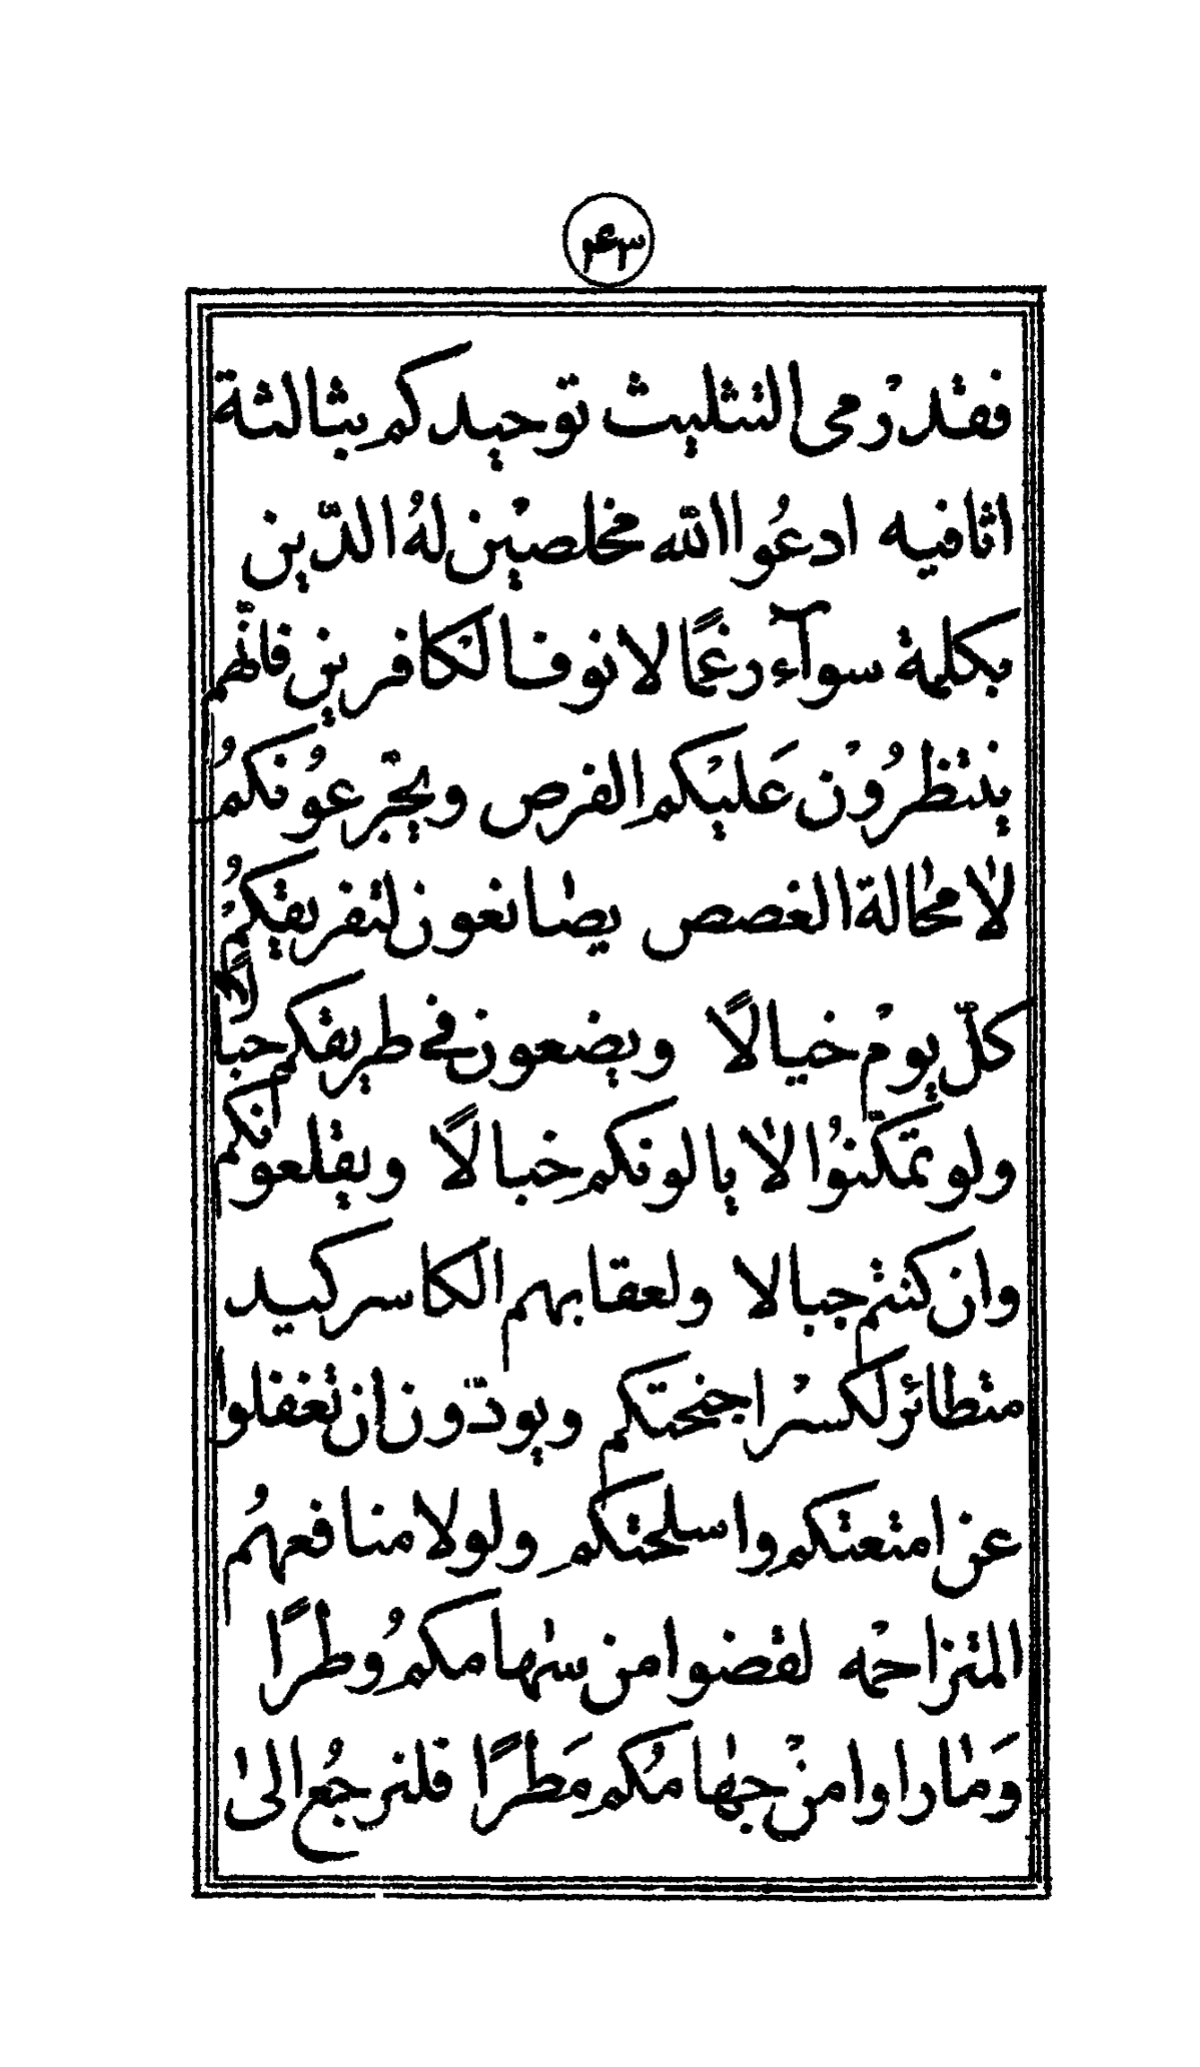 ٣٤٣
فقد رْمى التثليث توحيدكم بثالثة
اثافيه ادعُوا اللّه مخلصيْن لهُ الدّين
بكلمة سوآء رغمًا لانوف الكافرين فانّهم
ينتظرُوْن عَليْكم الفرص ويجرّعوُنكمُ
لا محالة الغصص يصانعون لتفريقكمُ
كلّ يومْ خيالًا ويضعون في طريقكم حبالًا
ولو تمكّنوُا لا يالونكم خبالًا ويقلعونكم
وان كنتم جبالا ولعقابهم الكاسر كيد
متطائر لكسْر اجنحتكم ويودّون ان تغفلوا
عن امتعتكم واسلحتكم ولولا منافعهُم
المتزاحمْه لقضوا من سهامكمُ وطرًا
وَما راوا منْ جهامكُم مَطرًا فلنرجُع الى